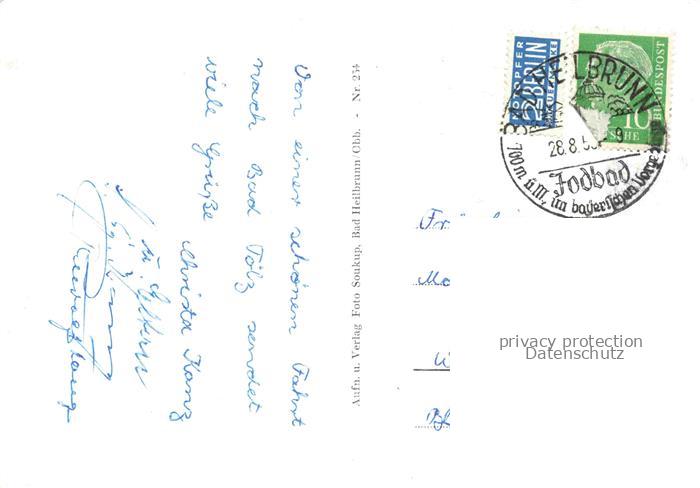 Von einer schönen Fahrt
nach Bad Tölz sendet
viele Grüße
Christa Kanz
u. Eltern
Aufn. u. Verlag Foto Soukup, Bad Heilbrunn/Obb. - Nr. 254
NOTOPFER
2 BERLIN
STEUERMARKE
10
BUNDESPOST
BAD HEILBRUNN
28.8.5
Jodbad
700 m ü.M., im bayerischen Vorge
Fr
Mo
privacy protection
Datenschutz